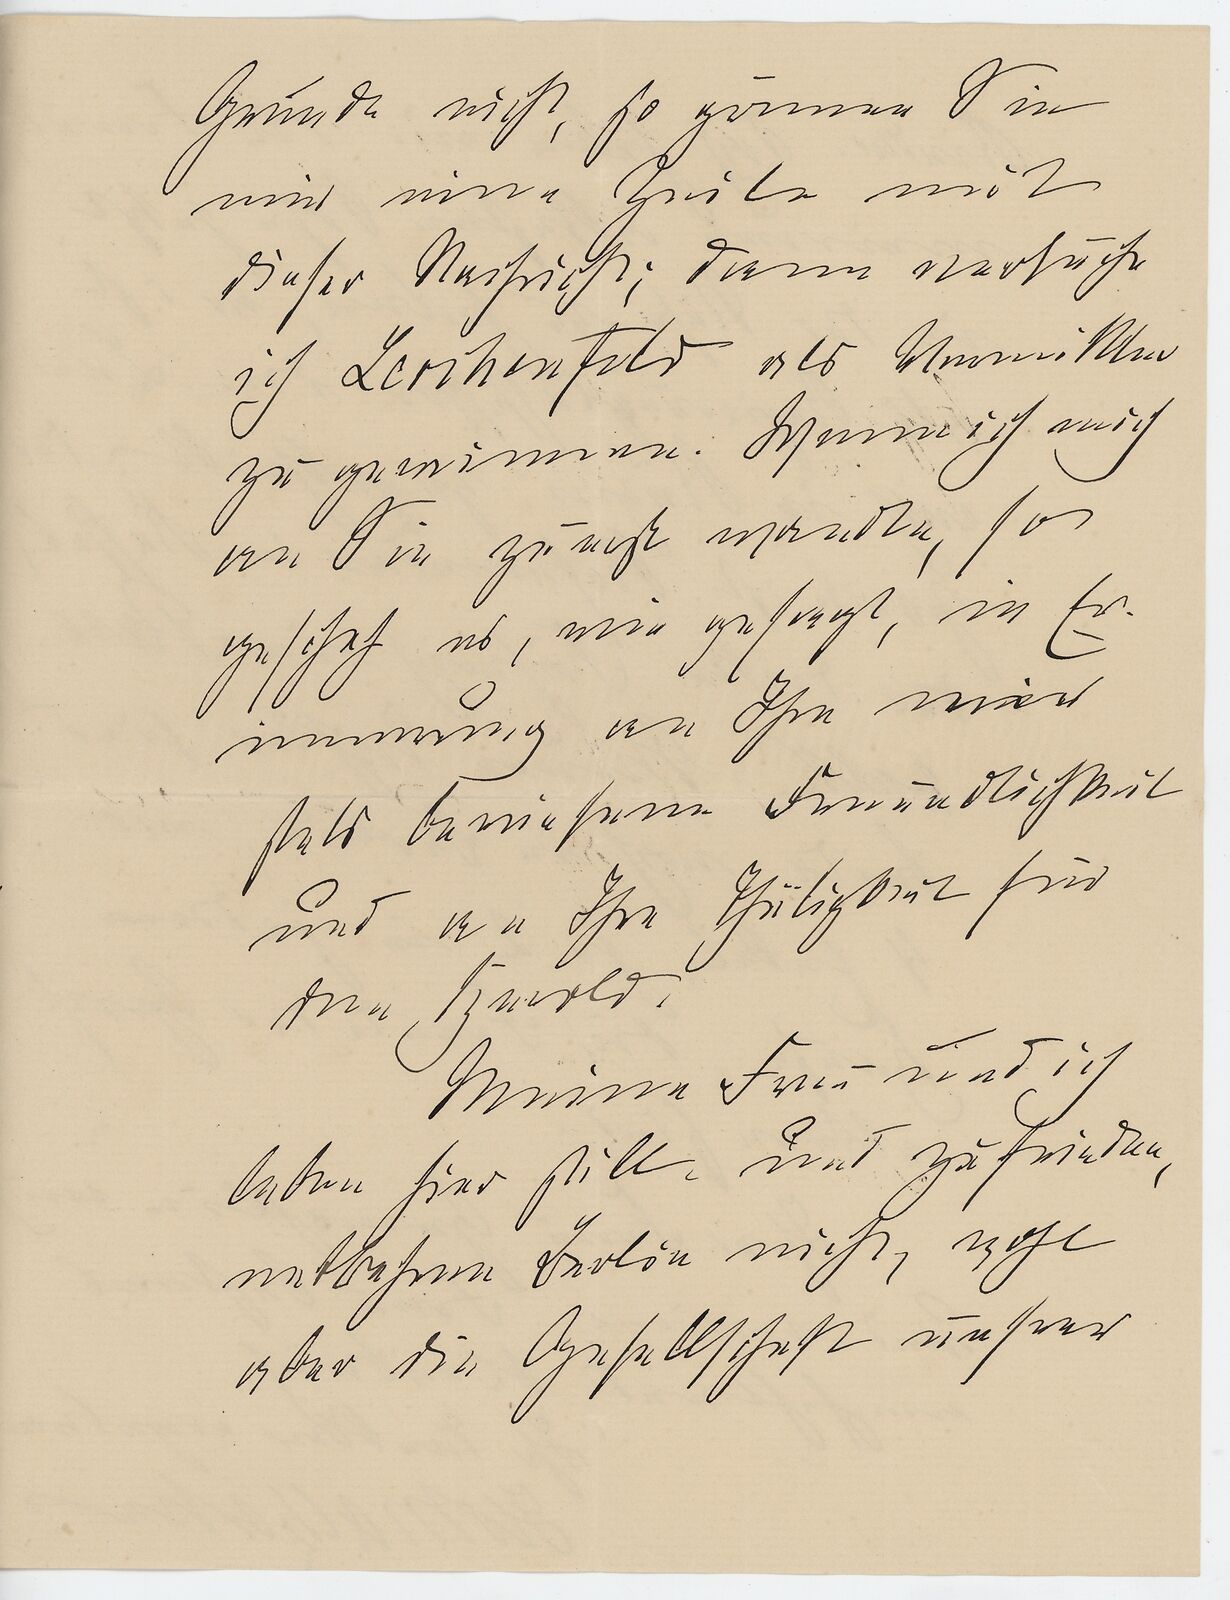 Grunde nicht, so gönnen Sie
mir eine Zeile mit
dieser Nachricht; dann versuche
ich Lerchenfeld als Vermittler
zu gewinnen. Wenn ich mich
an Sie zunächst wandte, so
geschah es, wie gesagt, in Er-
innerung an Ihre mir
stets bewiesene Freundlichkeit
und an Ihre Thätigkeit für
den Herold.
Meine Frau und ich
leben hier still und zufrieden,
entbehren Berlin nicht, wohl
aber die Gesellschaft unsrer